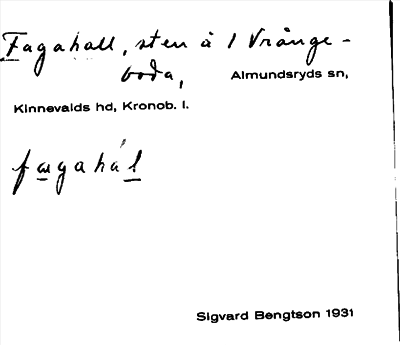 Fagahall, sten å 1 Vrånge-
boda, Almundsryds sn,
Kinnevalds hd, Kronob. l.
fagahál
Sigvard Bengtson 1931